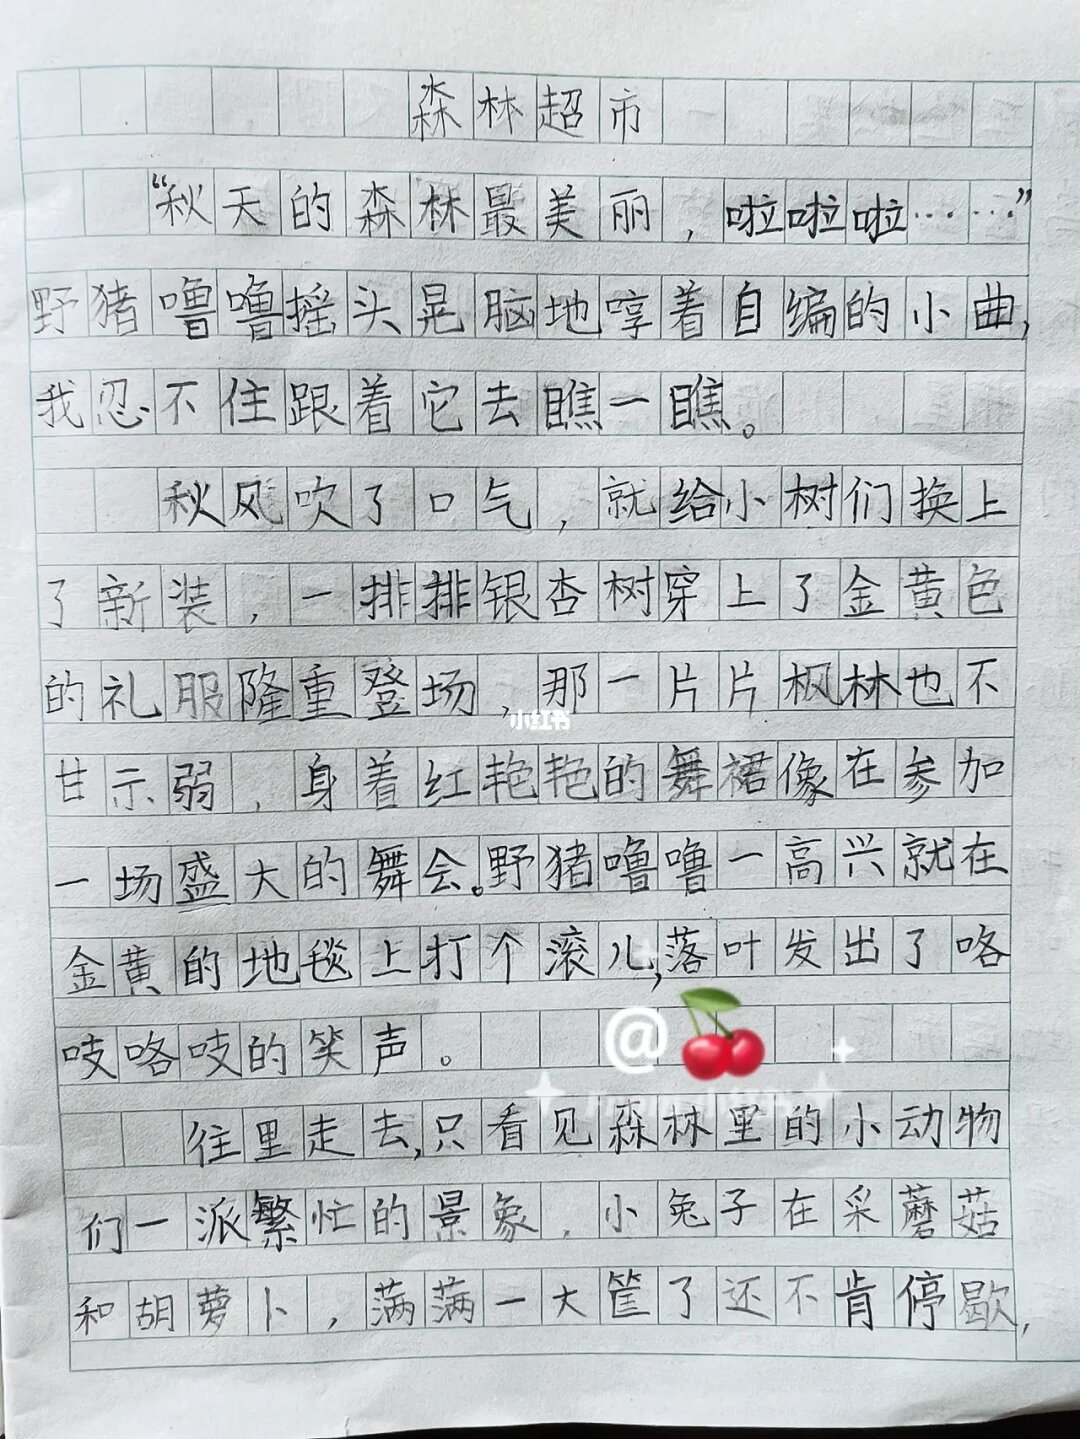 森林超市
“秋天的森林最美丽，啦啦啦……”
野猪噜噜摇头晃脑地哼着自编的小曲，
我忍不住跟着它去瞧一瞧。
秋风吹了口气，就给小树们换上
了新装，一排排银杏树穿上了金黄色
的礼服隆重登场，那一片片枫林也不
小红书
甘示弱，身着红艳艳的舞裙像在参加
一场盛大的舞会。野猪噜噜一高兴就在
金黄的地毯上打个滚儿，落叶发出了咯
吱咯吱的笑声。
@
往里走去，只看见森林里的小动物
们一派繁忙的景象，小兔子在采蘑菇
和胡萝卜，满满一大筐了还不肯停歇，